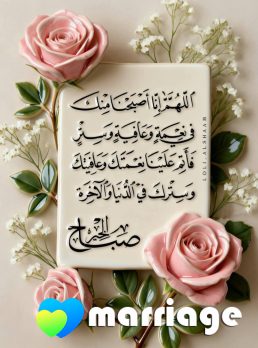 اللَّهُمَّ إِنَّا أَصْبَحْنَا مِنْكَ
فِي نِعْمَةٍ وَعَافِيَةٍ وَسِتْرٍ
فَأَتِمَّ عَلَيْنَا نِعْمَتَكَ وَعَافِيَتَكَ
وَسِتْرَكَ فِي الدُّنْيَا وَالْآخِرَةِ
صباح الخير
LOLI.ALSHAAR
marriage